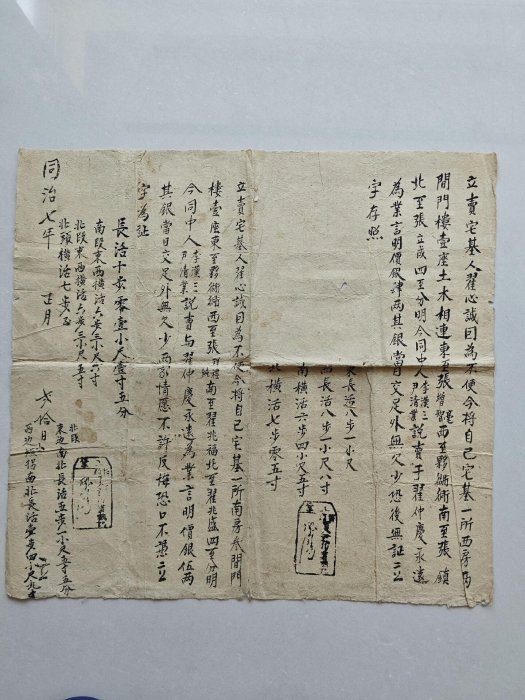 立賣宅基人翟心誠因為不便今將自己宅基一所西房两
間門樓壹座土木相連東至張增智西至夥衚衕南至張鎖
北至張立成四至分明今同中人李漢三尹清業說賣于翟仲慶永遠
為業言明價銀肆两其銀當日交足外無欠少恐後無証立
字存照
東長活八步一小尺
西長活八步一小尺八寸
南橫活六步四小尺五寸
北橫活七步零五寸
立賣宅基人翟心誠因為不便今將自己宅基一所南房叁間門
樓壹座東至夥衚衕西至張南至翟兆福北至翟兆盛四至分明
今同中人李漢三尹清業說賣与翟仲慶永遠為業言明價銀伍两
其銀當日交足外無欠少两家情愿不許反悔恐口不憑立
字為証
長活十步零壹小尺壹寸五分
南段東西橫活六步三小尺六寸
北段東西橫活六步三小尺五寸
北頭橫活七步正
同治七年 正月 弍拾日
北段
東边南北長活五步一小尺五寸五分
西边南北長活壹步四小尺九寸